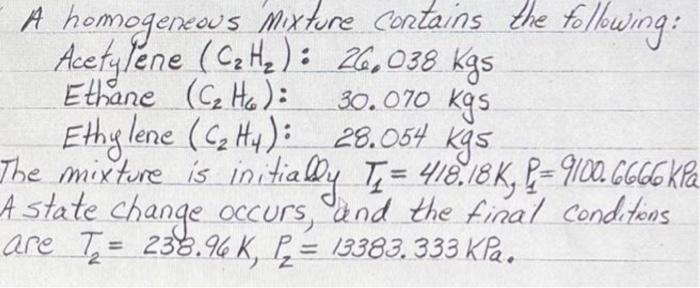 A homogeneous Mixture contains the following:
Acetylene (C₂H₂): 26.038 Kgs
Ethane (C₂H₆): 30.070 Kgs
Ethylene (C₂H₄): 28.054 Kgs
The mixture is initially T₁ = 418.18K, P₁= 9100.6666 KPa
A state change occurs, and the final conditions
are T₂ = 238.96 K, P₂ = 13383.333 KPa.